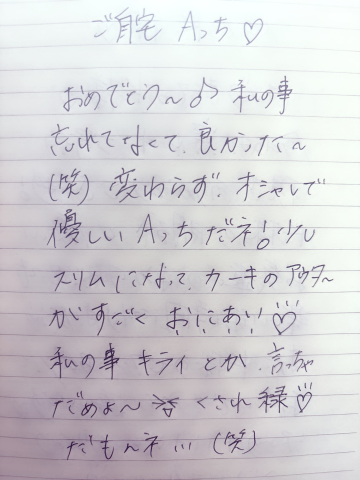 ご自宅 Aっち♡
おめでとう〜♪ 私の事
忘れてなくて、良かった〜
(笑) 変わらず、オシャレで
優しい Aっちだネ! 少し
スリムになって、カーキのアウター
がすごく おにあい♡
私の事 キライとか、言っちゃ
だめよ〜 くされ縁♡
だもんネ... (笑)